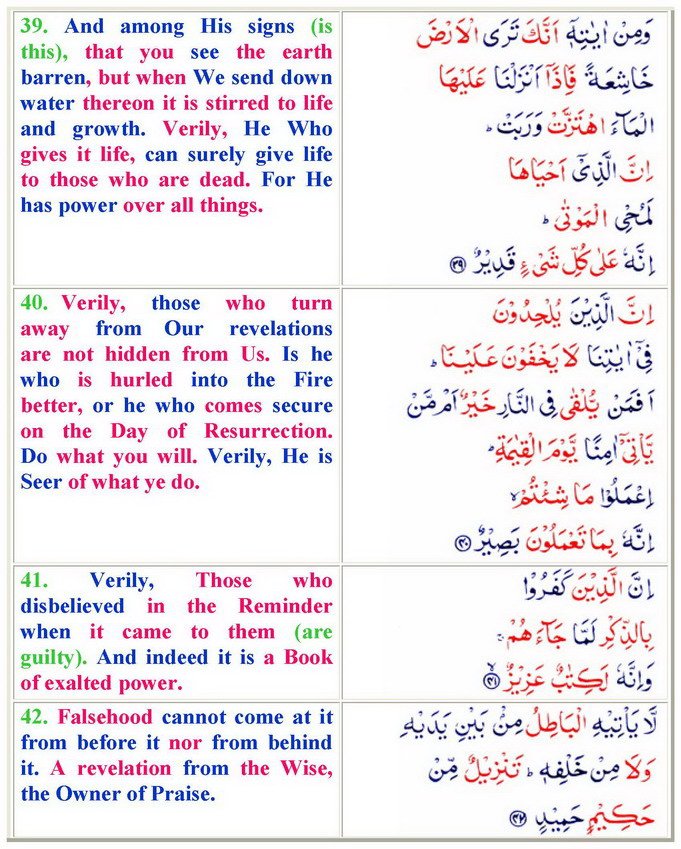 39. And among His signs (is
this), that you see the earth
barren, but when We send down
water thereon it is stirred to life
and growth. Verily, He Who
gives it life, can surely give life
to those who are dead. For He
has power over all things.
وَمِنْ اٰيٰتِهٖۤ اَنَّكَ تَرَى الْاَرْضَ
خَاشِعَةً فَاِذَاۤ اَنْزَلْنَا عَلَيْهَا
الْمَآءَ اهْتَزَّتْ وَرَبَتْ ؕ
اِنَّ الَّذِيْۤ اَحْيَاهَا
لَمُحْيِ الْمَوْتٰى ؕ
اِنَّهٗ عَلٰى كُلِّ شَيْءٍ قَدِيْرٌ ﴿۳۹﴾
40. Verily, those who turn
away from Our revelations
are not hidden from Us. Is he
who is hurled into the Fire
better, or he who comes secure
on the Day of Resurrection.
Do what you will. Verily, He is
Seer of what ye do.
اِنَّ الَّذِيْنَ يُلْحِدُوْنَ
فِيْۤ اٰيٰتِنَا لَا يَخْفَوْنَ عَلَيْنَا ؕ
اَفَمَنْ يُّلْقٰى فِي النَّارِ خَيْرٌ اَمْ مَّنْ
يَّاْتِيْۤ اٰمِنًا يَّوْمَ الْقِيٰمَةِ ؕ
اِعْمَلُوْا مَا شِئْتُمْ ۙ
اِنَّهٗ بِمَا تَعْمَلُوْنَ بَصِيْرٌ ﴿۴۰﴾
41. Verily, Those who
disbelieved in the Reminder
when it came to them (are
guilty). And indeed it is a Book
of exalted power.
اِنَّ الَّذِيْنَ كَفَرُوْا
بِالذِّكْرِ لَمَّا جَآءَهُمْ ۚ
وَاِنَّهٗ لَكِتٰبٌ عَزِيْزٌ ﴿۴۱﴾ۙ
42. Falsehood cannot come at it
from before it nor from behind
it. A revelation from the Wise,
the Owner of Praise.
لَّا يَاْتِيْهِ الْبَاطِلُ مِنْۢ بَيْنِ يَدَيْهِ
وَلَا مِنْ خَلْفِهٖ ؕ تَنْزِيْلٌ مِّنْ
حَكِيْمٍ حَمِيْدٍ ﴿۴۲﴾